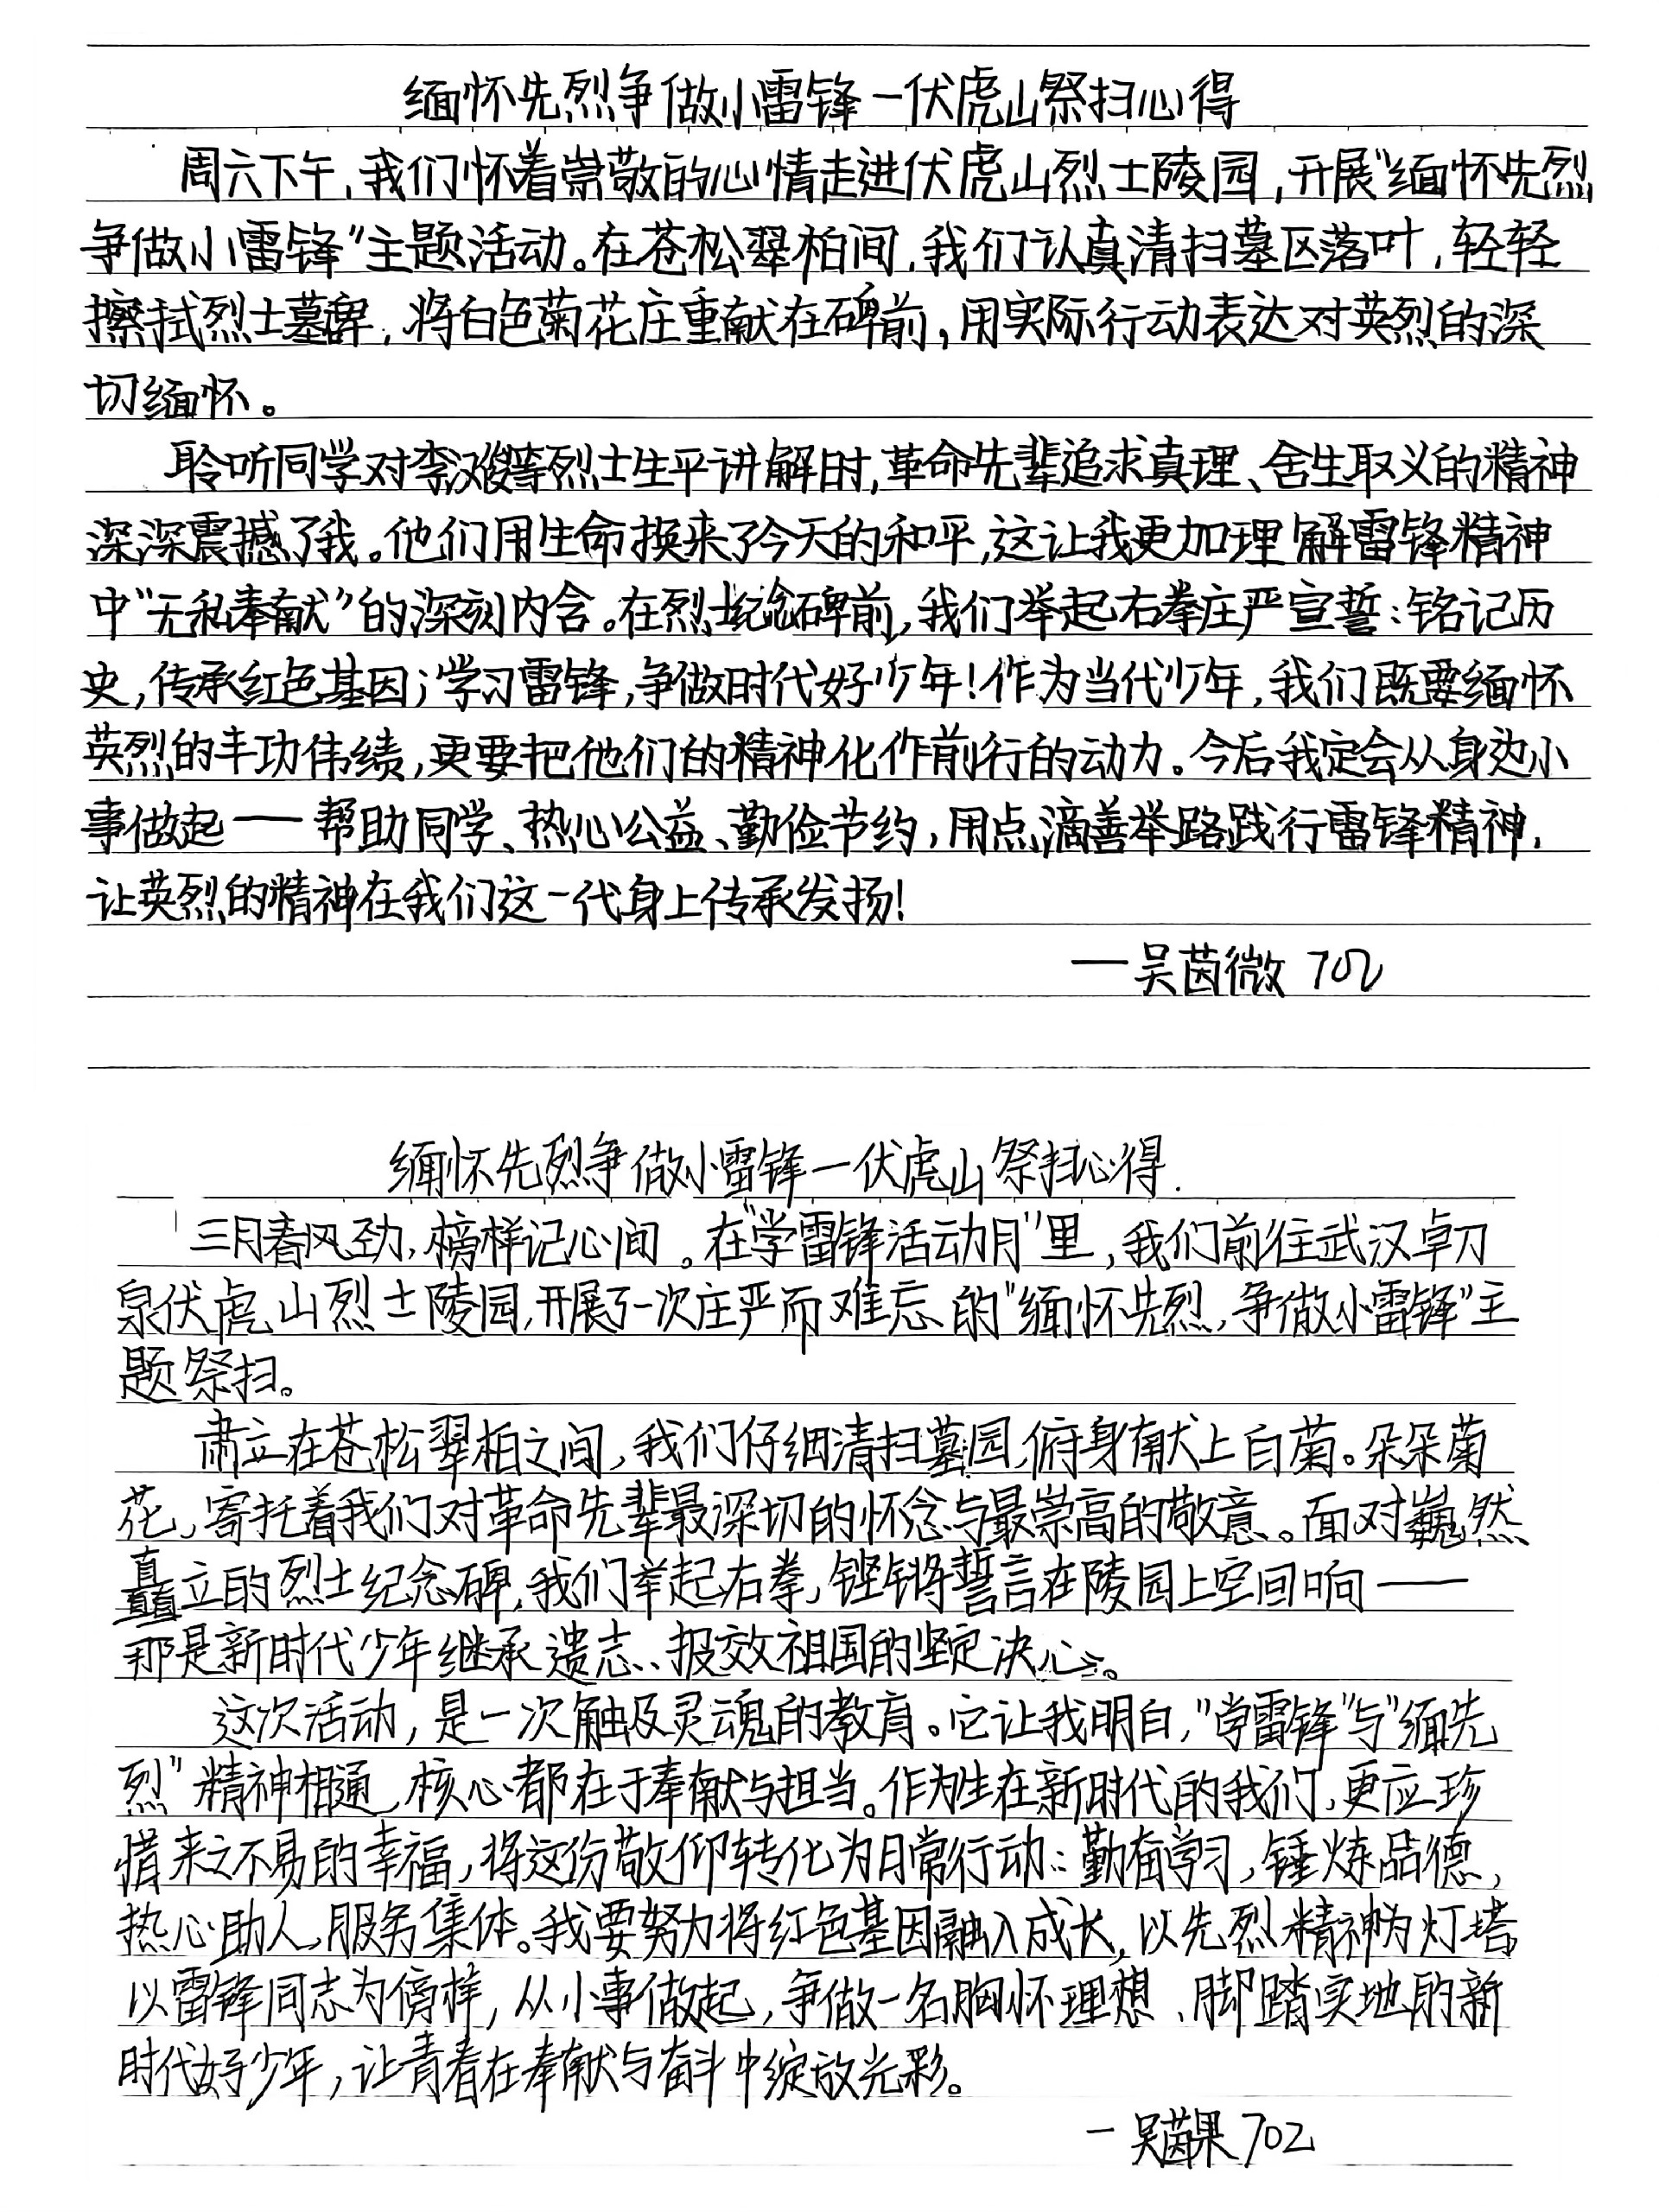 缅怀先烈争做小雷锋一伏虎山祭扫心得
周六下午,我们怀着崇敬的心情走进伏虎山烈士陵园,开展"缅怀先烈
争做小雷锋"主题活动。在苍松翠柏间,我们认真清扫墓区落叶,轻轻
擦拭烈士墓碑,将白色菊花庄重献在碑前,用实际行动表达对英烈的深
切缅怀。
聆听同学对李汉俊等烈士生平讲解时,革命先辈追求真理、舍生取义的精神
深深震撼了我。他们用生命换来了今天的和平,这让我更加理解雷锋精神
中"无私奉献"的深刻内含。在烈士纪念碑前,我们举起右拳庄严宣誓:铭记历
史,传承红色基因;学习雷锋,争做时代好少年!作为当代少年,我们既要缅怀
英烈的丰功伟绩,更要把他们的精神化作前行的动力。今后我定会从身边小
事做起——帮助同学、热心公益、勤俭节约,用点滴善举路践行雷锋精神,
让英烈的精神在我们这一代身上传承发扬!
——吴茵微 702
缅怀先烈争做小雷锋一伏虎山祭扫心得.
三月春风劲,榜样记心间。在"学雷锋活动月"里,我们前往武汉卓刀
泉伏虎山烈士陵园,开展了一次庄严而难忘的"缅怀先烈,争做小雷锋"主
题祭扫。
肃立在苍松翠柏之间,我们仔细清扫墓园,俯身献上白菊。朵朵菊
花,寄托着我们对革命先辈最深切的怀念与最崇高的敬意。面对巍然
矗立的烈士纪念碑,我们举起右拳,铿锵誓言在陵园上空回响——
那是新时代少年继承遗志、报效祖国的坚定决心。
这次活动,是一次触及灵魂的教育。它让我明白,"学雷锋"与"缅先
烈"精神相通,核心都在于奉献与担当。作为生在新时代的我们,更应珍
惜来之不易的幸福,将这份敬仰转化为日常行动:勤奋学习,锤炼品德,
热心助人,服务集体。我要努力将红色基因融入成长,以先烈精神为灯塔
以雷锋同志为傍样,从小事做起,争做一名胸怀理想、脚踏实地的新
时代好少年,让青春在奉献与奋斗中绽放光彩。
一吴茵果 702